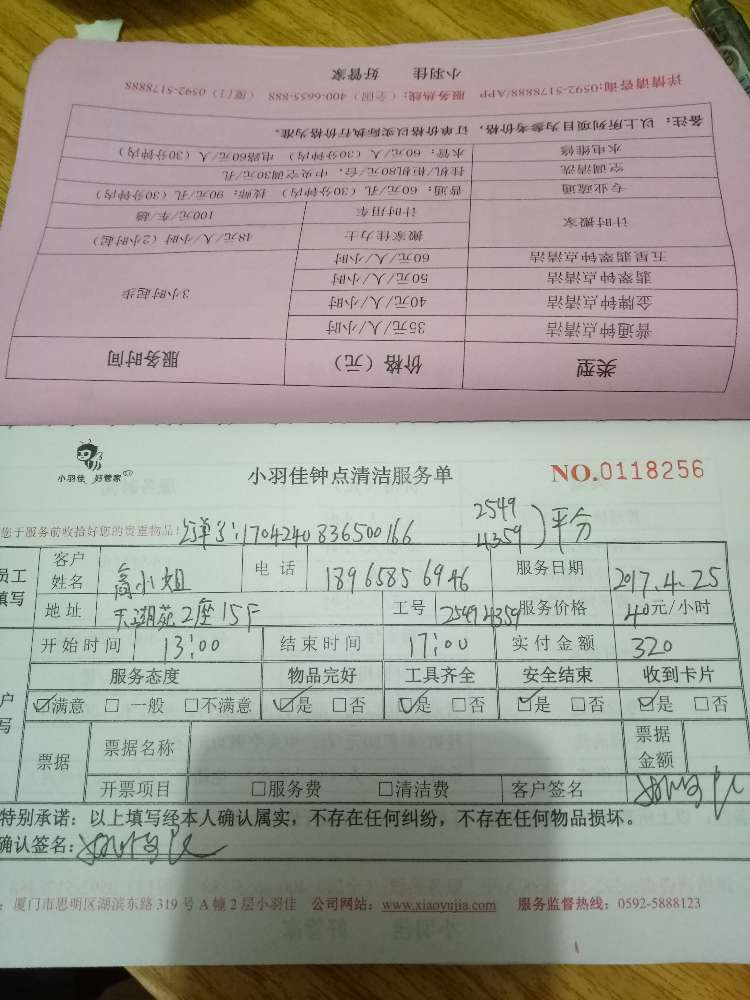 类型 价格（元） 服务时间
普通钟点清洁 35元/人/小时 3小时起步
金牌钟点清洁 40元/人/小时
翡翠钟点清洁 50元/人/小时
五星翡翠钟点清洁 60元/人/小时
计时搬家 搬家佳力士 48元/人/小时（2小时起）
计时用车 100元/车/趟
专业疏通 普通：60元/孔（30分钟内） 技师：90元/孔（30分钟内）
空调清洗 挂机/柜机80元/台，中央空调30元/孔
水电维修 水管：60元/人（30分钟内） 电路60元/人（30分钟内）
备注：以上所列项目为参考价格，订单价格以实际执行价格为准。
详情请咨询:0592-5178888/APP 服务热线：（全国）400-6655-888 （厦门）0592-5178888
小羽佳 好管家
小羽佳 好管家
小羽佳钟点清洁服务单 NO.0118256
您于服务前收拾好您的贵重物品! 订单号:1704240836500166 2549 4359 平分
员工填写 客户姓名 高小姐 电话 18965856946 服务日期 2017.4.25
地址 天湖苑2座15F 工号 2549 4359 服务价格 40元/小时
开始时间 13:00 结束时间 17:00 实付金额 320
服务态度 物品完好 工具齐全 安全结束 收到卡片
户写 ☑满意 □一般 □不满意 ☑是 □否 ☑是 □否 ☑是 □否 ☑是 □否
票据 票据名称 票据金额
开票项目 □服务费 □清洁费 客户签名
特别承诺：以上填写经本人确认属实，不存在任何纠纷，不存在任何物品损坏。
确认签名:
：厦门市思明区湖滨东路319号A幢2层小羽佳 公司网站：www.xiaoyujia.com 服务监督热线：0592-5888123